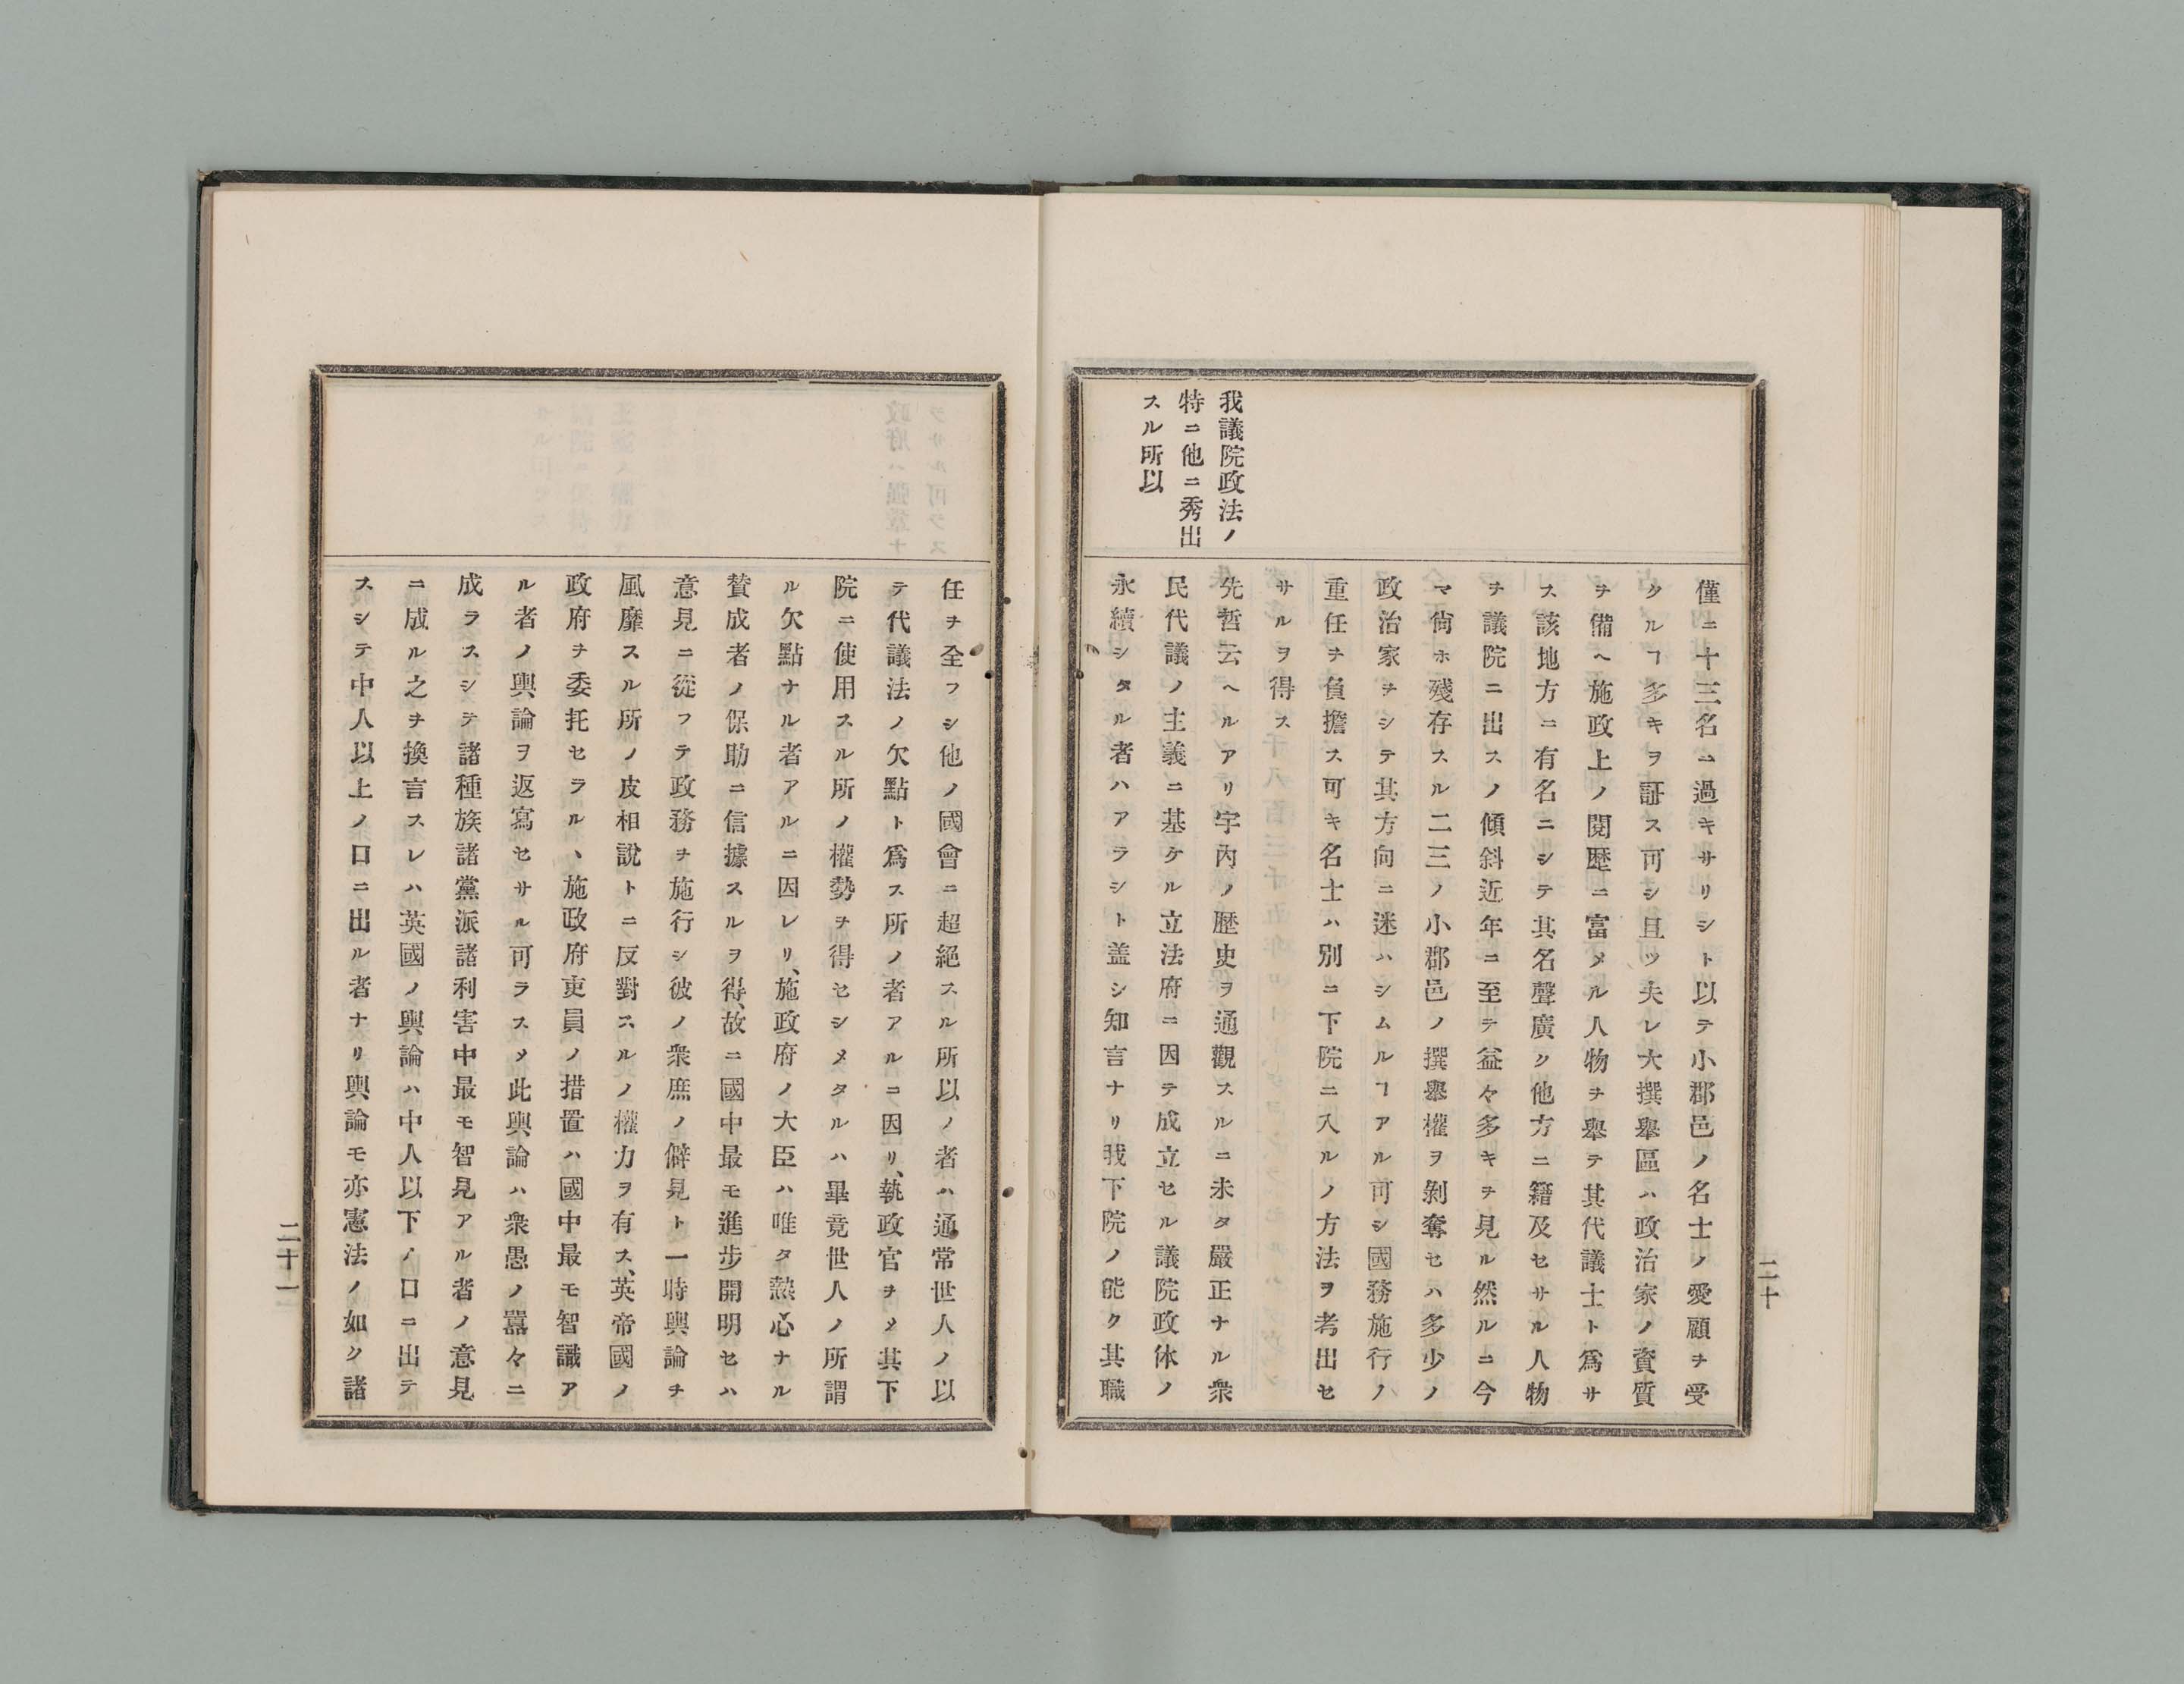 我議院政法ノ
特ニ他ニ秀出
スル所以
僅ニ十三名ニ過キサリシト以テ小郡邑ノ名士ノ愛顧ヲ受
クルヿ多キヲ証ス可シ且ツ夫レ大撰舉區ハ政治家ノ資質
ヲ備ヘ施政上ノ閱歴ニ富メル人物ヲ舉テ其代議士ト爲サ
ス該地方ニ有名ニシテ其名聲廣ク他方ニ籍及セサル人物
ヲ議院ニ出スノ傾斜近年ニ至テ益々多キヲ見ル然ルニ今
マ尙ホ殘存スル二三ノ小郡邑ノ撰舉權ヲ剝奪セハ多少ノ
政治家ヲシテ其方向ニ迷ハシムルヿアル可シ國務施行ノ
重任ヲ負擔ス可キ名士ハ別ニ下院ニ入ルノ方法ヲ考出セ
サルヲ得ス
先哲云ヘルアリ宇內ノ歴史ヲ通觀スルニ未タ嚴正ナル衆
民代議ノ主義ニ基ケル立法府ニ因テ成立セル議院政体ノ
永續シタル者ハアラシト盖シ知言ナリ我下院ノ能ク其職
二十
任ヲ全フシ他ノ國會ニ超絕スル所以ノ者ハ通常世人ノ以
テ代議法ノ欠點ト爲ス所ノ者アルニ因リ、執政官ヲメ其下
院ニ使用スル所ノ權勢ヲ得セシメタルハ畢竟世人ノ所謂
ル欠點ナル者アルニ因レリ、施政府ノ大臣ハ唯タ熱心ナル
賛成者ノ保助ニ信據スルヲ得、故ニ國中最モ進步開明セハ
意見ニ從フテ政務ヲ施行シ彼ノ衆庶ノ僻見ト一時輿論ヲ
風靡スル所ノ皮相說トニ反對スルノ權力ヲ有ス、英帝國ノ
政府ヲ委托セラル、施政府吏員ノ措置ハ國中最モ智識ア
ル者ノ輿論ヲ返寫セサル可ラスメ此輿論ハ衆愚ノ囂々ニ
成ラスシテ諸種族諸黨派諸利害中最モ智見アル者ノ意見
ニ成ル之ヲ換言スレハ英國ノ輿論ハ中人以下ノ口ニ出テ
スシテ中人以上ノ口ニ出ル者ナリ輿論モ亦憲法ノ如ク諸
二十一